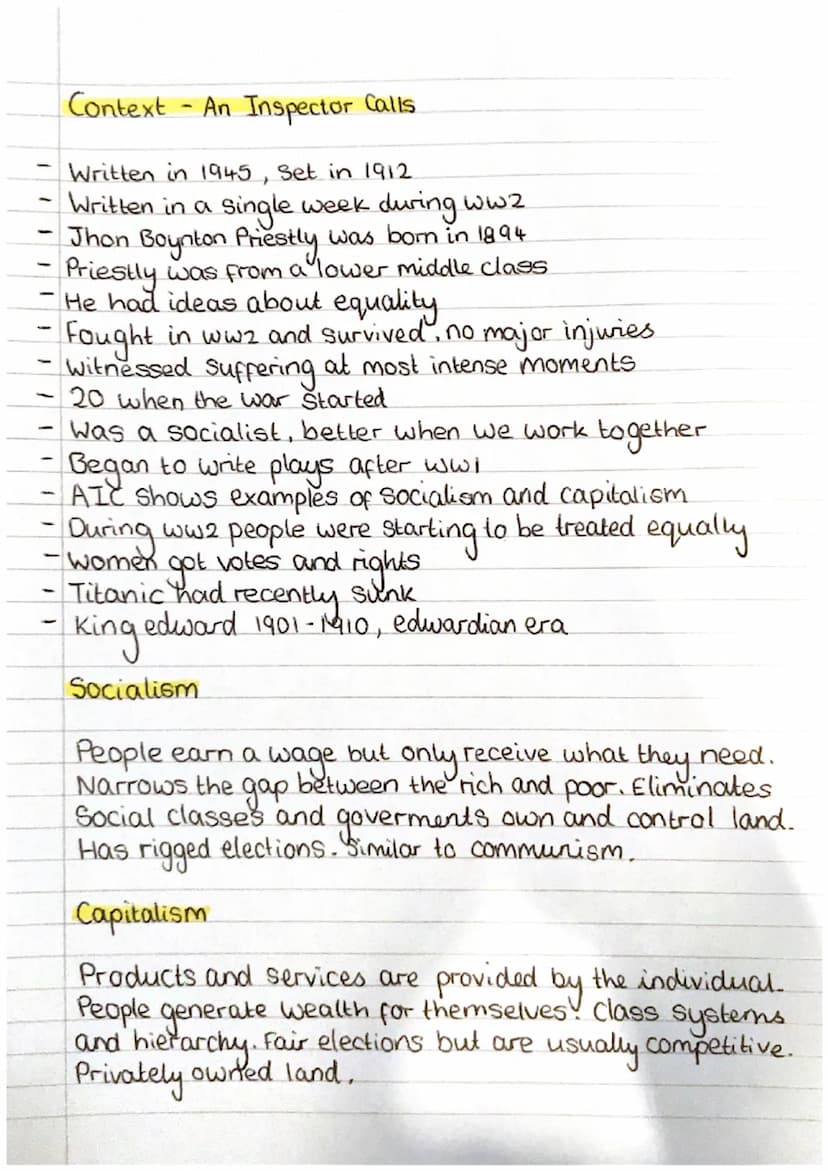 Context - An Inspector Calls
- Written in 1945, Set in 1912
- Written in a single week during ww2
- Jhon Boynton Priestly was born in 1894
- Priestly was from a lower middle class
- He had ideas about equality
- Fought in ww2 and survived, no major injuries
- witnessed suffering at most intense moments
- 20 when the war started
- Was a socialist, better when we work together
- Began to write plays after ww1
- AIC shows examples of socialism and capitalism
- During ww2 people were starting to be treated equally
- women got votes and rights
- Titanic had recently sunk
- King edward 1901-1910, edwardian era
Socialism
People earn a wage but only receive what they need.
Narrows the gap between the rich and poor. Eliminates
Social classes and goverments own and control land.
Has rigged elections. Similar to communism.
Capitalism
Products and services are provided by the individual.
People generate wealth for themselves. Class systems
and hierarchy. Fair elections but are usually competitive.
Privately owned land.